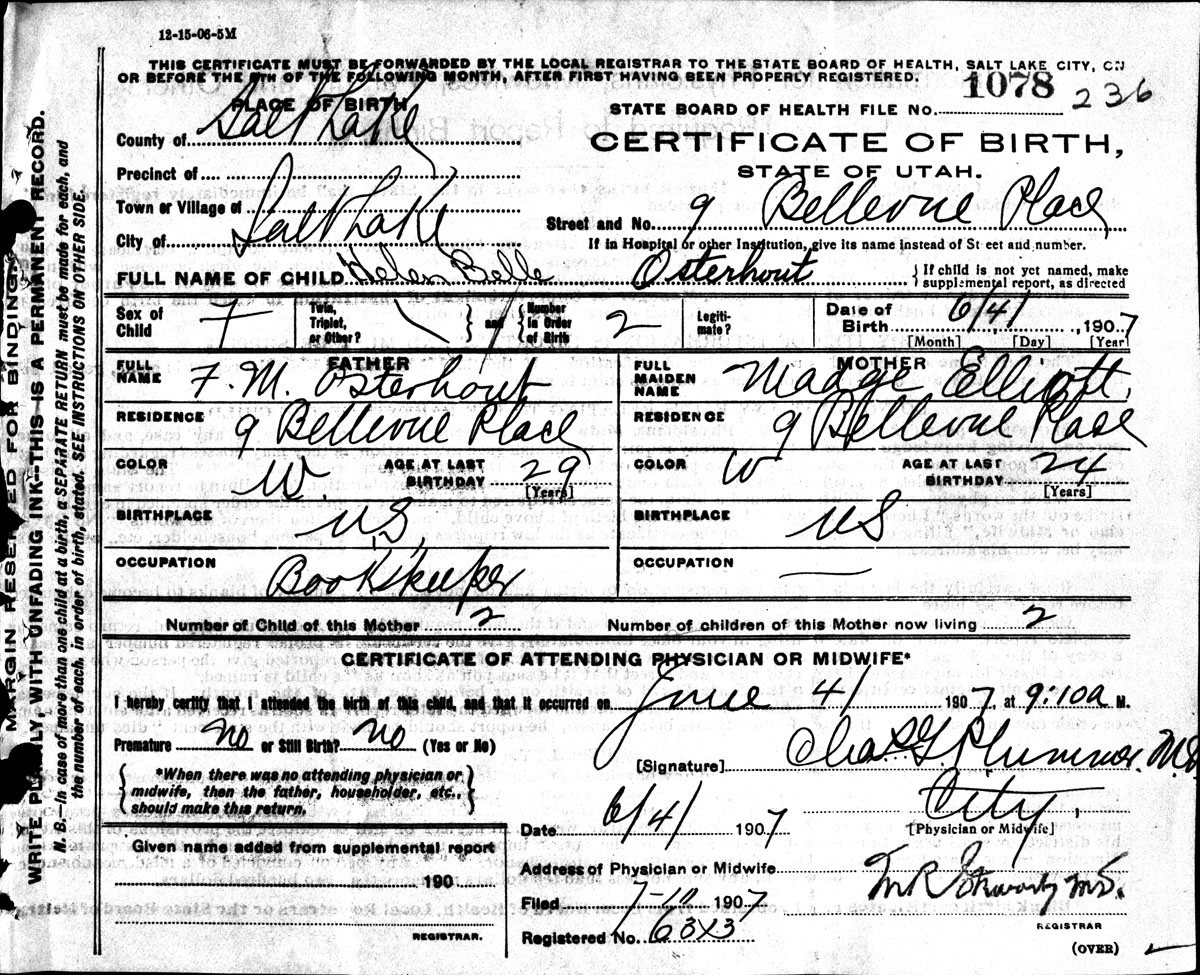 12-15-06-5M
THIS CERTIFICATE MUST BE FORWARDED BY THE LOCAL REGISTRAR TO THE STATE BOARD OF HEALTH, SALT LAKE CITY, ON
OR BEFORE THE 5TH OF THE FOLLOWING MONTH, AFTER FIRST HAVING BEEN PROPERLY REGISTERED.
1078 236
PLACE OF BIRTH
STATE BOARD OF HEALTH FILE No.
County of Salt Lake
CERTIFICATE OF BIRTH,
STATE OF UTAH.
Precinct of
Town or Village of
City of Salt Lake
Street and No. 9 Bellevue Place
If in Hospital or other Institution, give its name instead of Street and number.
FULL NAME OF CHILD Helen Belle Osterhout
{ If child is not yet named, make
supplemental report, as directed
Sex of Child F
Twin, Triplet, or Other? \ } and { Number in Order of Birth 2
Legiti-mate?
Date of Birth 6/4/, 1907
[Month] [Day] [Year]
FATHER
FULL NAME F. M. Osterhout
RESIDENCE 9 Bellevue Place
COLOR W. AGE AT LAST BIRTHDAY 29
[Years]
BIRTHPLACE U.S.
OCCUPATION Bookkeeper
MOTHER
FULL MAIDEN NAME Madge Elliott,
RESIDENCE 9 Bellevue Place
COLOR W AGE AT LAST BIRTHDAY 24
[Years]
BIRTHPLACE US
OCCUPATION —
Number of Child of this Mother 2 Number of children of this Mother now living 2
CERTIFICATE OF ATTENDING PHYSICIAN OR MIDWIFE*
I hereby certify that I attended the birth of this child, and that it occurred on June 4/ 1907 at 9:10a M.
Premature No or Still Birth? No (Yes or No)
*When there was no attending physician or
midwife, then the father, householder, etc.,
should make this return.
[Signature] Chas G. Plummer. M.D
Date 6/4/ 1907
City,
[Physician or Midwife]
Given name added from supplemental report
190
REGISTRAR.
Address of Physician or Midwife
Filed 7-10 1907
Registered No. 6323
M.D.
REGISTRAR
(OVER)
MARGIN RESERVED FOR BINDING
WRITE PLAINLY, WITH UNFADING INK—THIS IS A PERMANENT RECORD.
N. B.—In case of more than one child at a birth, a SEPARATE RETURN must be made for each, and
the number of each, in order of birth, stated. SEE INSTRUCTIONS ON OTHER SIDE.